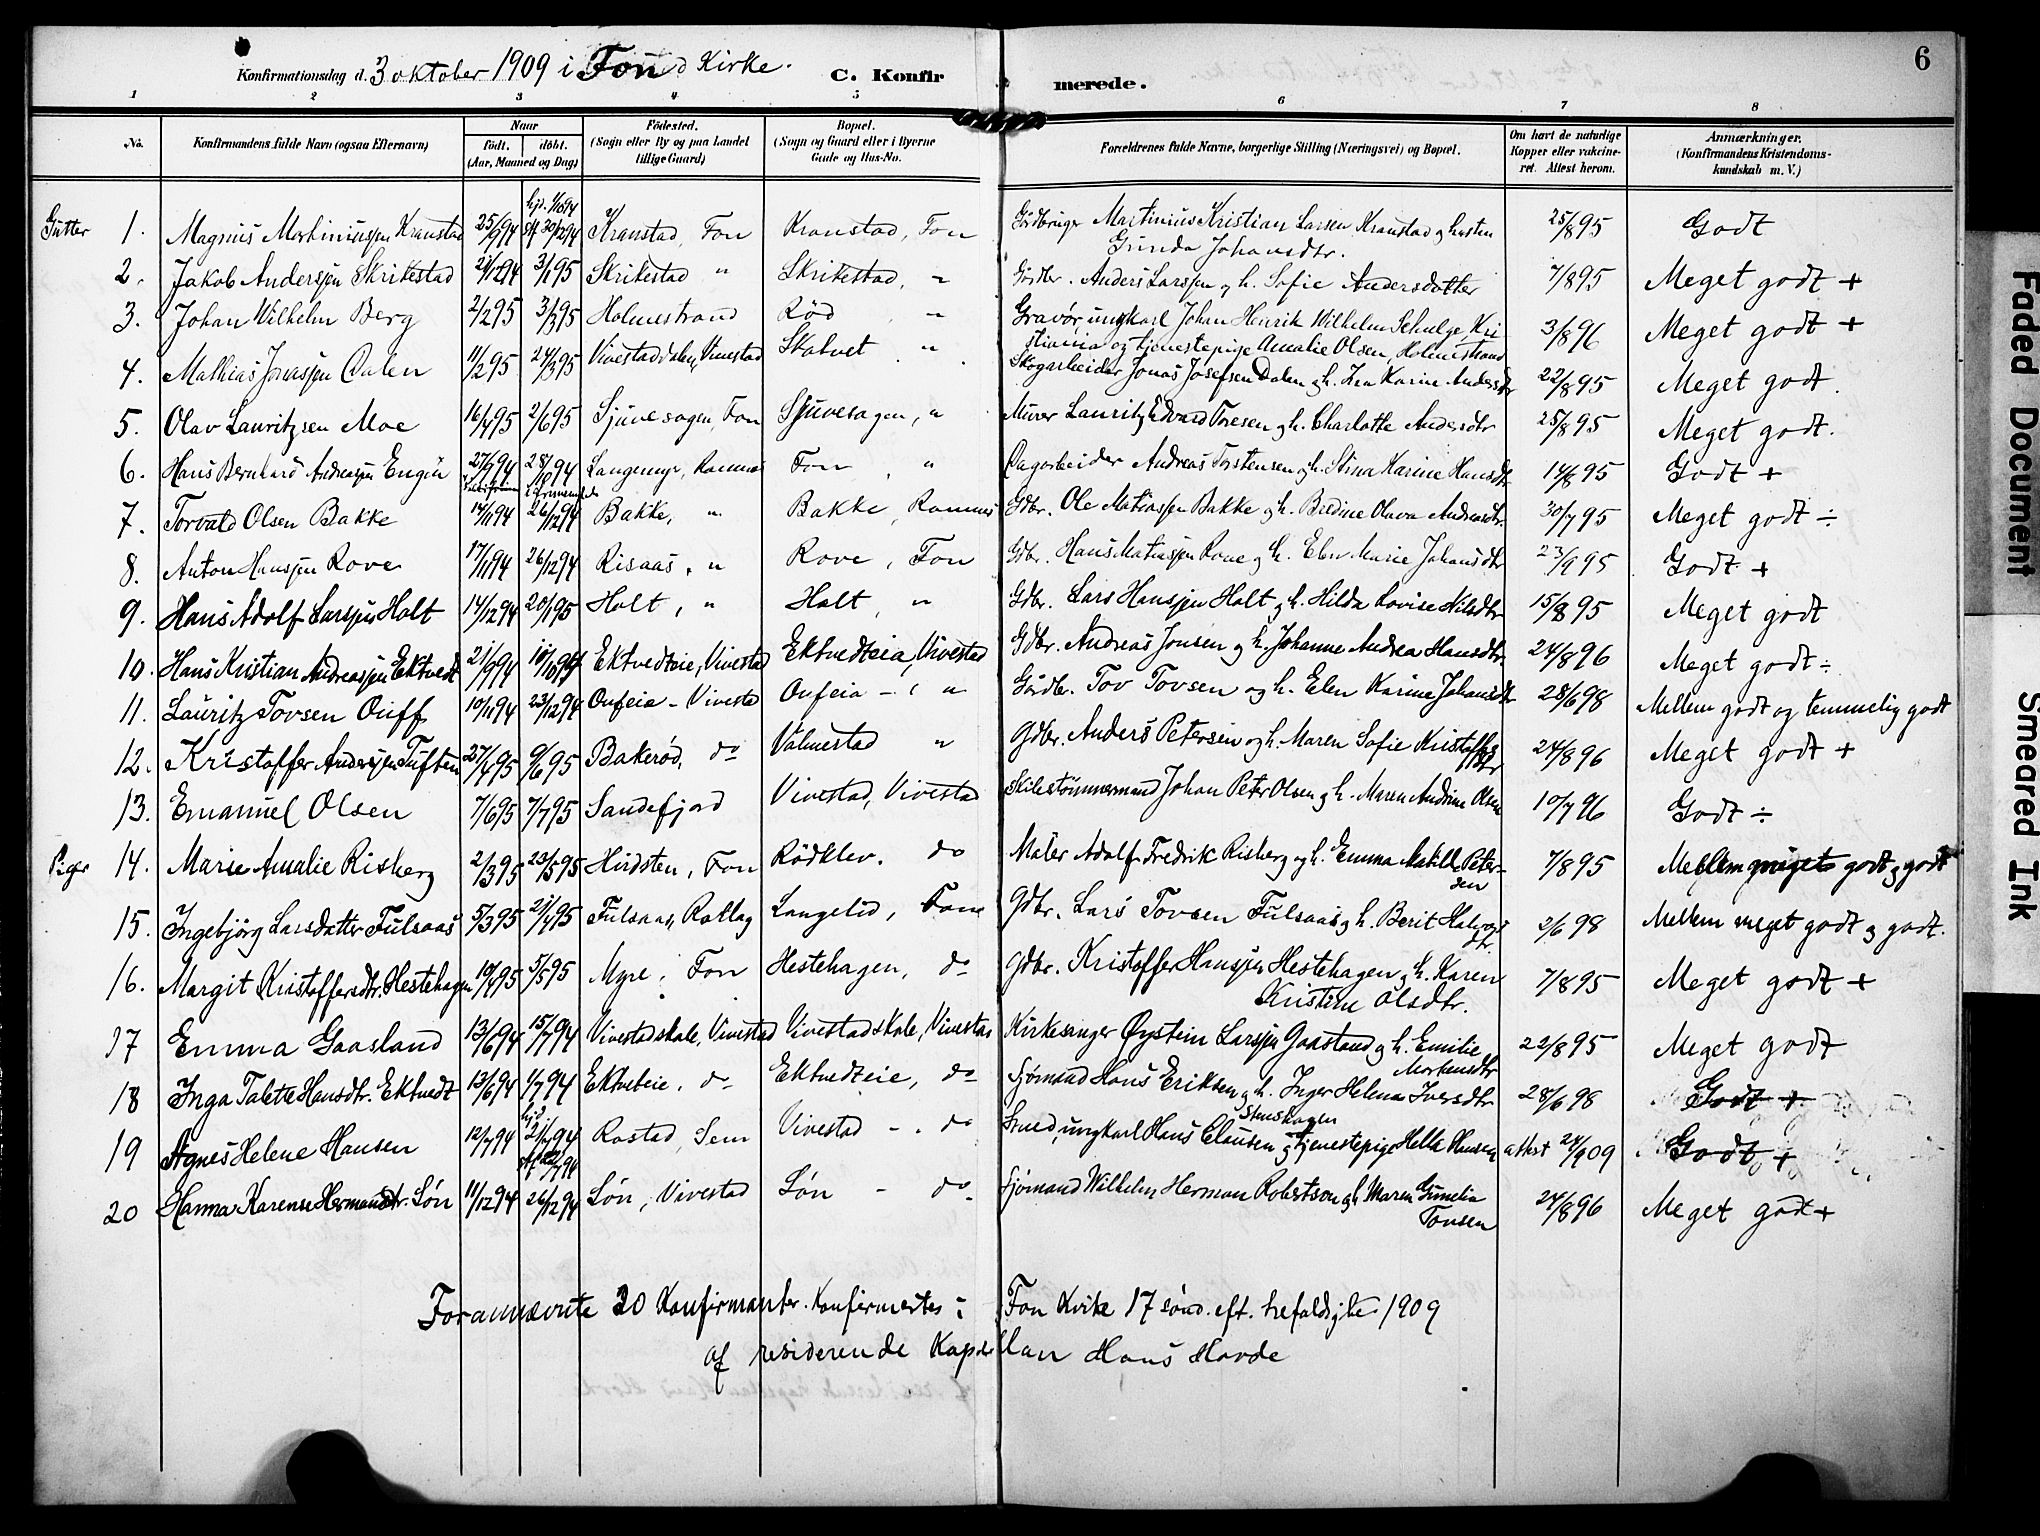 6
Konfirmationsdag d. 3 oktober 1909 i Fon Kirke. C. Konfirmerede.
1 2 3 4 5 6 7 8
No. Konfirmandens fulde Navn (ogsaa Efternavn) Naar født. døbt. (Aar, Maaned og Dag) Fødested. (Sogn eller By og paa Landet tillige Gaard) Bopæl. (Sogn og Gaard eller i Byerne Gade og Hus-No. Forældrenes fulde Navne, borgerlige Stilling (Næringsvei) og Bopæl. Om havt de naturlige Kopper eller vakcineret. Attest herom. Anmærkninger. (Konfirmandens Kristendomskundskab m. V.)
Gutter 1. Magnus Martiniussen Kranstad 25/9 94 30/12 94 Kranstad, Fon Kranstad, Fon Gårdbruger Martinius Kristian Larsen Kranstad og hustru Gunda Johansdtr. 25/8 95 Godt
2. Jakob Anderssen Skrikestad 21/12 94 3/1 95 Skrikestad " Skrikestad, " Gårdbr. Anders Larssen og h. Sofie Andersdatter 7/8 95 Meget godt +
3. Johan Wilhelm Berg 2/2 95 3/3 95 Holmestrand Rød " Gravør, ungkarl Johan Henrik Wilhelm Schulze, Kristiania og tjenestepige Amalie Olsen, Holmestrand 3/8 96 Meget godt +
4. Mathias Jonassen Dalen 11/2 95 24/3 95 Vivestaddalen, Vivestad Skatvet " Skogarbeider Jonas Josefsen Dalen og h. Lea Karine Andersdtr 22/8 95 Meget godt.
5. Olav Lauritzsen Moe 16/4 95 2/6 95 Sjuvesagen, Fon Sjuvesagen, " Murer Lauritz Edvard Toresen og h. Charlotte Andersdtr 25/8 95 Meget godt.
6. Hans Bernhard Andreassen Engen 27/9 94 28/10 94 Langemyr, Ramnes Fon " Dagarbeider Andreas Torstensen og h. Stina Karine Hansdtr 14/8 95 Godt +
7. Torvald Olsen Bakke 14/11 94 26/12 94 Bakke, " Bakke, Ramnes Gdbr. Ole Matiassen Bakke og h. Berdine Olava Andreasdtr. 30/7 95 Meget godt ÷
8. Anton Hanssen Rove 17/11 94 26/12 94 Risaas, " Rove, Fon Gdbr. Hans Matiassen Rove og h. Elen Marie Johansdtr 23/9 95 Godt +
9. Hans Adolf Larssen Holt 14/12 94 20/1 95 Holt, " Holt, " Gdbr. Lars Hanssen Holt og h. Hilda Lovise Nilsdtr 15/8 95 Meget godt
10. Hans Kristian Andreassen Ektvedt 21/9 94 Ektvedteie, Vivestad Ektvedteia, Vivestad Gdbr. Andreas Jonsen og h. Johanne Andrea Hansdtr. 24/8 96 Meget godt ÷
11. Lauritz Tovsen Ouff 10/11 94 23/12 94 Oufeia - Vivestad Oufeia - " Gårdbr. Tov Tovsen og h. Elen Karine Johansdtr 28/6 98 Mellem godt og temmelig godt
12. Kristoffer Anderssen Tuften 27/4 95 9/6 95 Bakerød, do Valmestad " Gdbr. Anders Petersen og h. Maren Sofie Kristoffersdtr 24/8 96 Meget godt +
13. Emanuel Olsen 7/6 95 7/7 95 Sandefjord Vivestad, Vivestad Skibstømmermand Johan Peter Olsen og h. Maren Andrine Olsen 10/7 96 Godt ÷
Piger 14. Marie Amalie Risberg 2/3 95 23/5 95 Hvidsten, Fon Rødklev. do Maler Adolf Fredrik Risberg og h. Emma Matilde Petersen 7/8 95 Mellem meget godt og godt
15. Ingebjörg Larsdatter Fulsaas 5/3 95 21/4 95 Fulsaas, Rollag Langelid, Fon Gdbr. Lars Tovsen Fulsaas og h. Berit Halvorsdtr 2/6 98 Mellem meget godt og godt.
16. Margit Kristoffersdtr. Hestehagen 19/4 95 5/5 95 Myre, Fon Hestehagen, do Gdbr. Kristoffer Hanssen Hestehagen og h. Karen Kristine Olsdtr. 7/8 95 Meget godt +
17 Emma Gaasland 13/6 94 15/7 94 Vivestadskole, Vivestad Vivestadskole, Vivestad Kirkesanger Øystein Larssen Gaasland og h. Emilie Mortensdtr 22/8 95 Meget godt
18 Inga Talette Hansdtr. Ektvedt 13/6 94 1/7 94 Ektveteie, do Ektvedteie, do Sjømand Hans Eriksen og h. Inger Helena Iversdtr 28/6 98 Godt +
19 Agnes Helene Hansen 12/7 94 hjd. 21/7 94 Rostad, Sem Vivestad - do Smed, ungkarl Hans Clausen Stenshagen og tjenestepige Hella Hansen attest 24/9 09 Godt +
20 Hanna Karense Hermansdtr. Løn 11/12 94 26/12 94 Løn, Vivestad Løn - do Sjømand Wilhelm Herman Robertson og h. Maren Gunelia Tovsen 24/8 96 Meget godt +
Forannævnte 20 Konfirmanter konfirmertes i Fon Kirke 17 sønd. eft. trefoldighet 1909
af residerende Kapellan Hans Hovde
Faded Document Smeared Ink